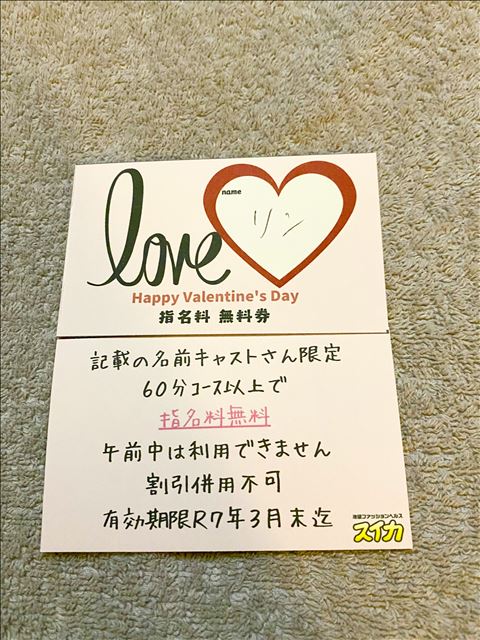 love
name
リン
Happy Valentine's Day
指名料 無料券
記載の名前キャストさん限定
60分コース以上で
指名料無料
午前中は利用できません
割引併用不可
有効期限R7年3月末迄
池袋ファッションヘルス
スイカ